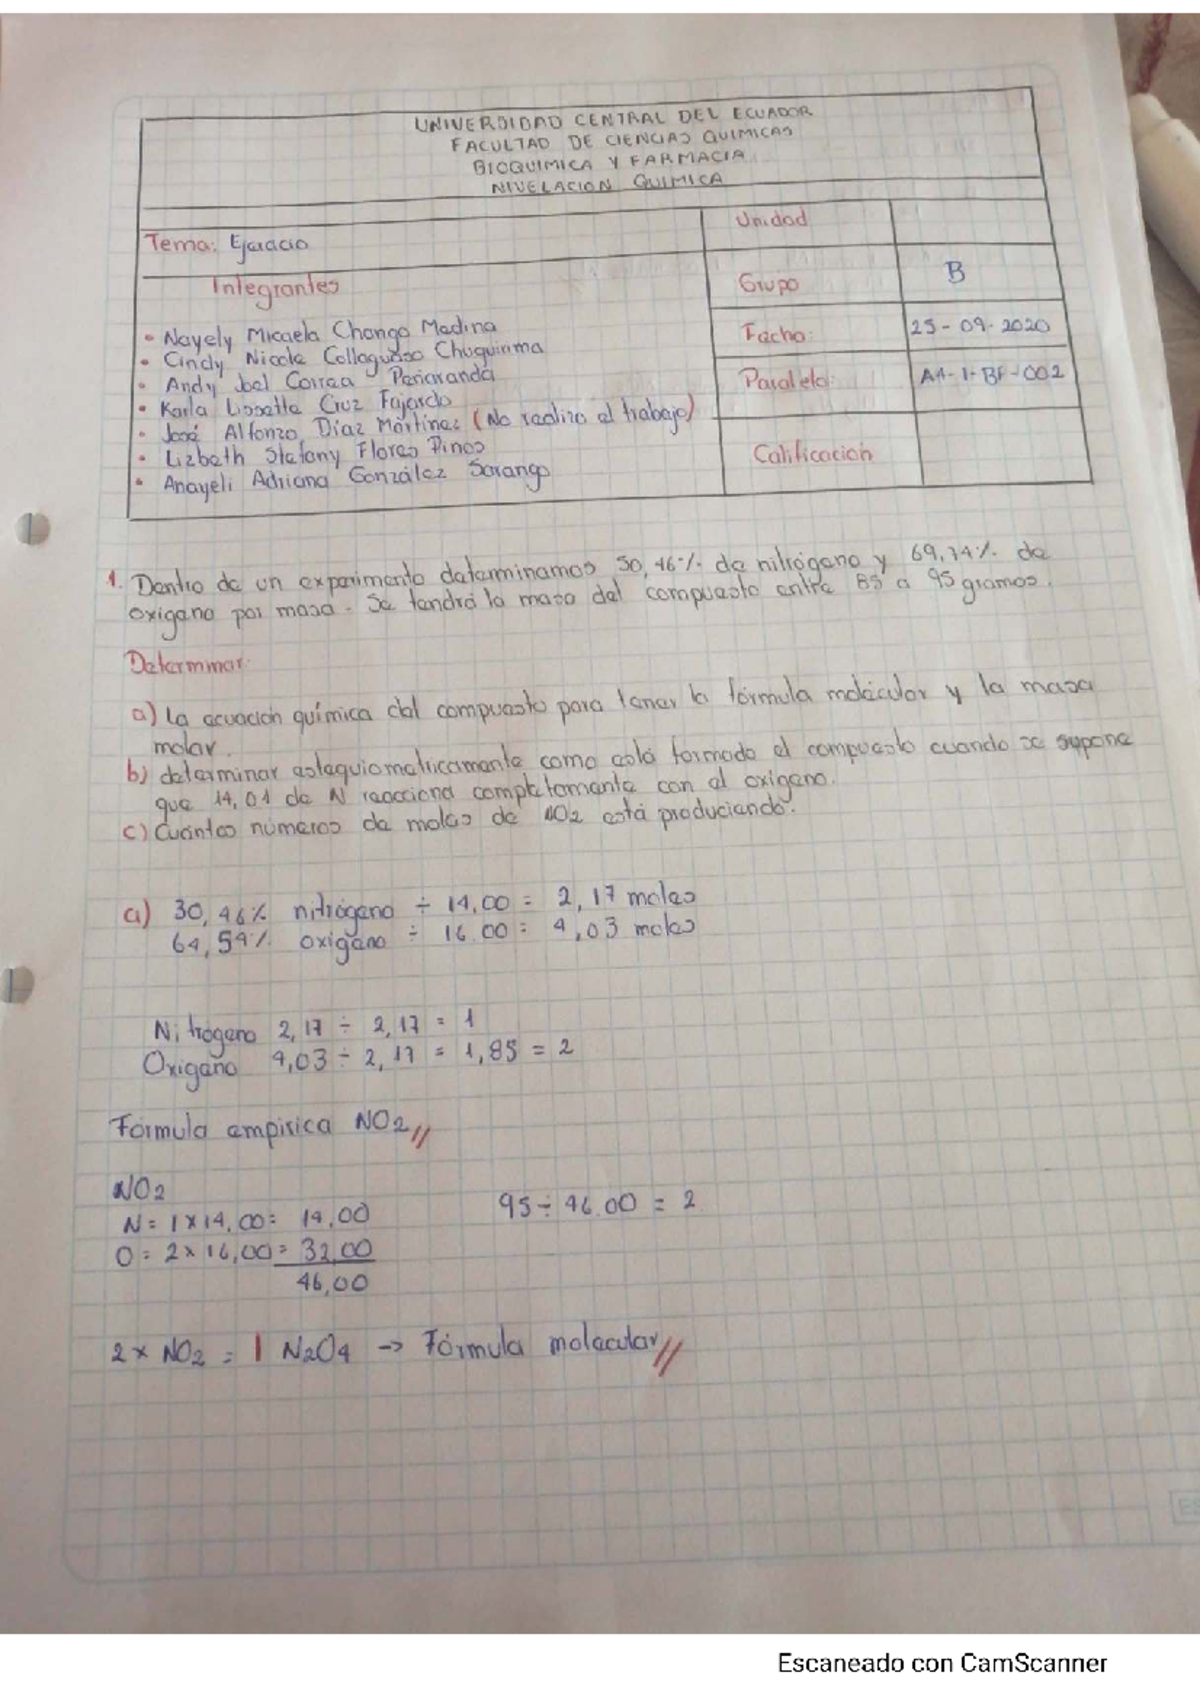 UNIVERSIDAD CENTRAL DEL ECUADOR
FACULTAD DE CIENCIAS QUIMICAS
BIOQUIMICA Y FARMACIA
NIVELACION QUIMICA
Tema: Ejercicio
Unidad
Integrantes
Grupo B
• Nayely Micaela Chango Medina
Fecha: 25-09-2020
• Cindy Nicole Collaguaso Chuquirima
• Andy Joel Correa Peñaranda
Paralelo: A4-1-BF-002
• Karla Lissette Cruz Fajardo
• José Alfonzo Díaz Mártinez (No realizo el trabajo)
• Lizbeth Stefany Flores Pinos
Calificación
• Anayeli Adriana González Sarango
1. Dentro de un experimento determinamos 30,46% de nitrógeno y 69,74% de
oxigeno por masa. Se tendrá la masa del compuesto entre 85 a 95 gramos.
Determinar:
a) La ecuación química del compuesto para tener la fórmula molécular y la masa
molar.
b) determinar estequiometricamente como está formado el compuesto cuando se supone
que 14,01 de N reacciona completamente con el oxígeno.
c) Cuántos números de moles de NO2 está produciendo.
a) 30,46% nitrógeno ÷ 14,00 = 2,17 moles
64,54% oxigeno ÷ 16.00 = 4,03 moles
Nitrógeno 2,17 ÷ 2,17 = 1
Oxigeno 4,03 ÷ 2,17 = 1,85 = 2
Fórmula empirica NO2//
NO2
N = 1x14,00 = 14,00
95 ÷ 46.00 = 2
O = 2x16,00 = 32,00
46,00
2 x NO2 = | N2O4 -> Fórmula molecular//
Escaneado con CamScanner